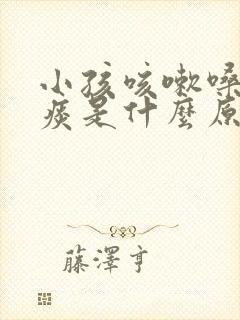 小孩咳嗽嗓
痰是什麼原
藤澤亨